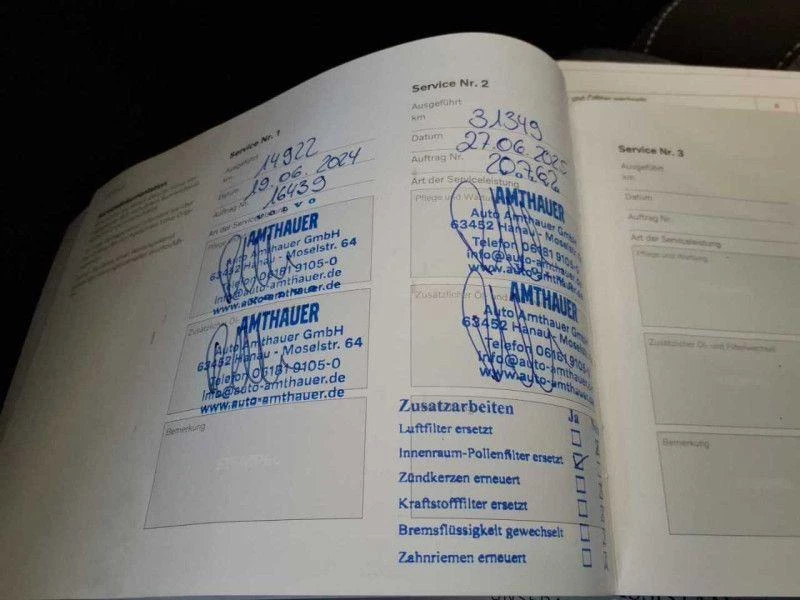 Service Nr. 1
Ausgeführt
km 14922
Datum 19.06.2024
Auftrag Nr. 16439
Art der Serviceleistung
VOLVO
AMTHAUER
Auto Amthauer GmbH
63452 Hanau - Moselstr. 64
Telefon 06181 9105-0
info@auto-amthauer.de
www.auto-amthauer.de
Zusätzlicher Öl-
AMTHAUER
Auto Amthauer GmbH
63452 Hanau - Moselstr. 64
Telefon 06181 9105-0
info@auto-amthauer.de
www.auto-amthauer.de
Bemerkung
Service Nr. 2
Ausgeführt
km 31349
Datum 27.06.2025
Auftrag Nr. 20762
Art der Serviceleistung
Pflege und Wartung
AMTHAUER
Auto Amthauer GmbH
63452 Hanau - Moselstr.
Telefon 06181 9105-
info@auto-amthauer.
www.auto-amthauer.
Zusätzlicher Öl- und
AMTHAUER
Auto Amthauer GmbH
63452 Hanau - Moselstr.
Telefon 06181 9105-
info@auto-amthauer.
www.auto-amthauer.
Zusatzarbeiten Ja
Luftfilter ersetzt
Innenraum-Pollenfilter ersetzt
Zündkerzen erneuert
Kraftstofffilter ersetzt
Bremsflüssigkeit gewechselt
Zahnriemen erneuert
Service Nr. 3
Ausgeführt
km
Datum
Auftrag Nr.
Art der Serviceleistung
Pflege und Wartung
Zusätzlicher Öl- und Filterwechsel
Bemerkung